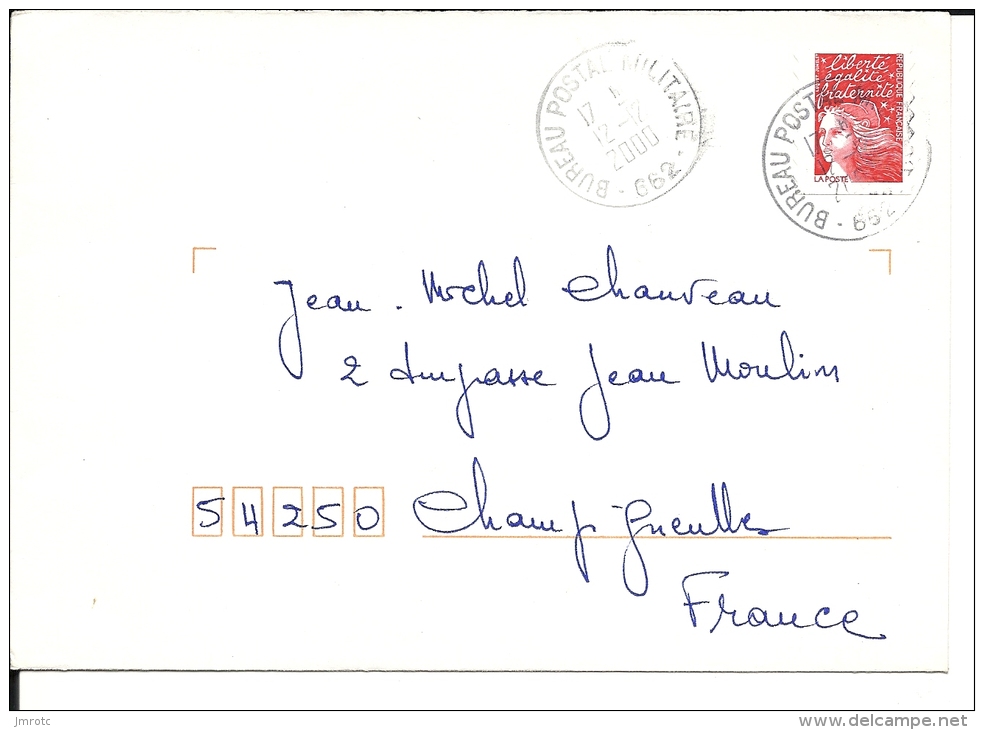 BUREAU POSTAL MILITAIRE
17 H
12-12
2000
- 662 -
liberté
égalité
fraternité
RÉPUBLIQUE FRANÇAISE
LA POSTE
BUREAU POSTA
17
Jean-Michel Chauveau
2 impasse Jean Moulin
54250 Champigneulles
France
jmrotc
www.delcampe.net